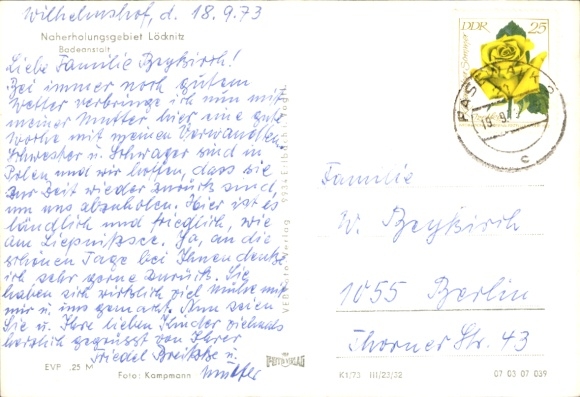 Wilhelmshof, d. 18.9.73
Naherholungsgebiet Löcknitz
Badeanstalt
Liebe Familie Beykirch!
Bei immer noch gutem
Wetter verbringe ich nun mit
meiner Mutter hier eine gute
Woche mit meinen Verwandten.
Schwester u. Schwager sind in
Polen und wir hoffen, dass sie
zur Zeit wieder zurück sind,
um uns abzuholen. Hier ist es
ländlich und friedlich, wie
am Liepnitzsee. Ja, an die
schönen Tage bei Ihnen denke
ich sehr gerne zurück. Sie
haben sich wirklich viel Mühe mit
mir u. uns gemacht. Nun seien
Sie u. Ihre lieben Kinder vielmals
herzlich gegrüsst von Ihrer
Friedel u.
Mutter
EVP ,25 M
Foto: Kampmann
VEB Foto-Verlag 9934 Erlbach i. Vogtl.
FOTO VERLAG
DDR 25
PASEWALK
19.9.
c
Familie
W. Beykirch
1055 Berlin
Thorner Str. 43
K1/73 III/23/32
07 03 07 039